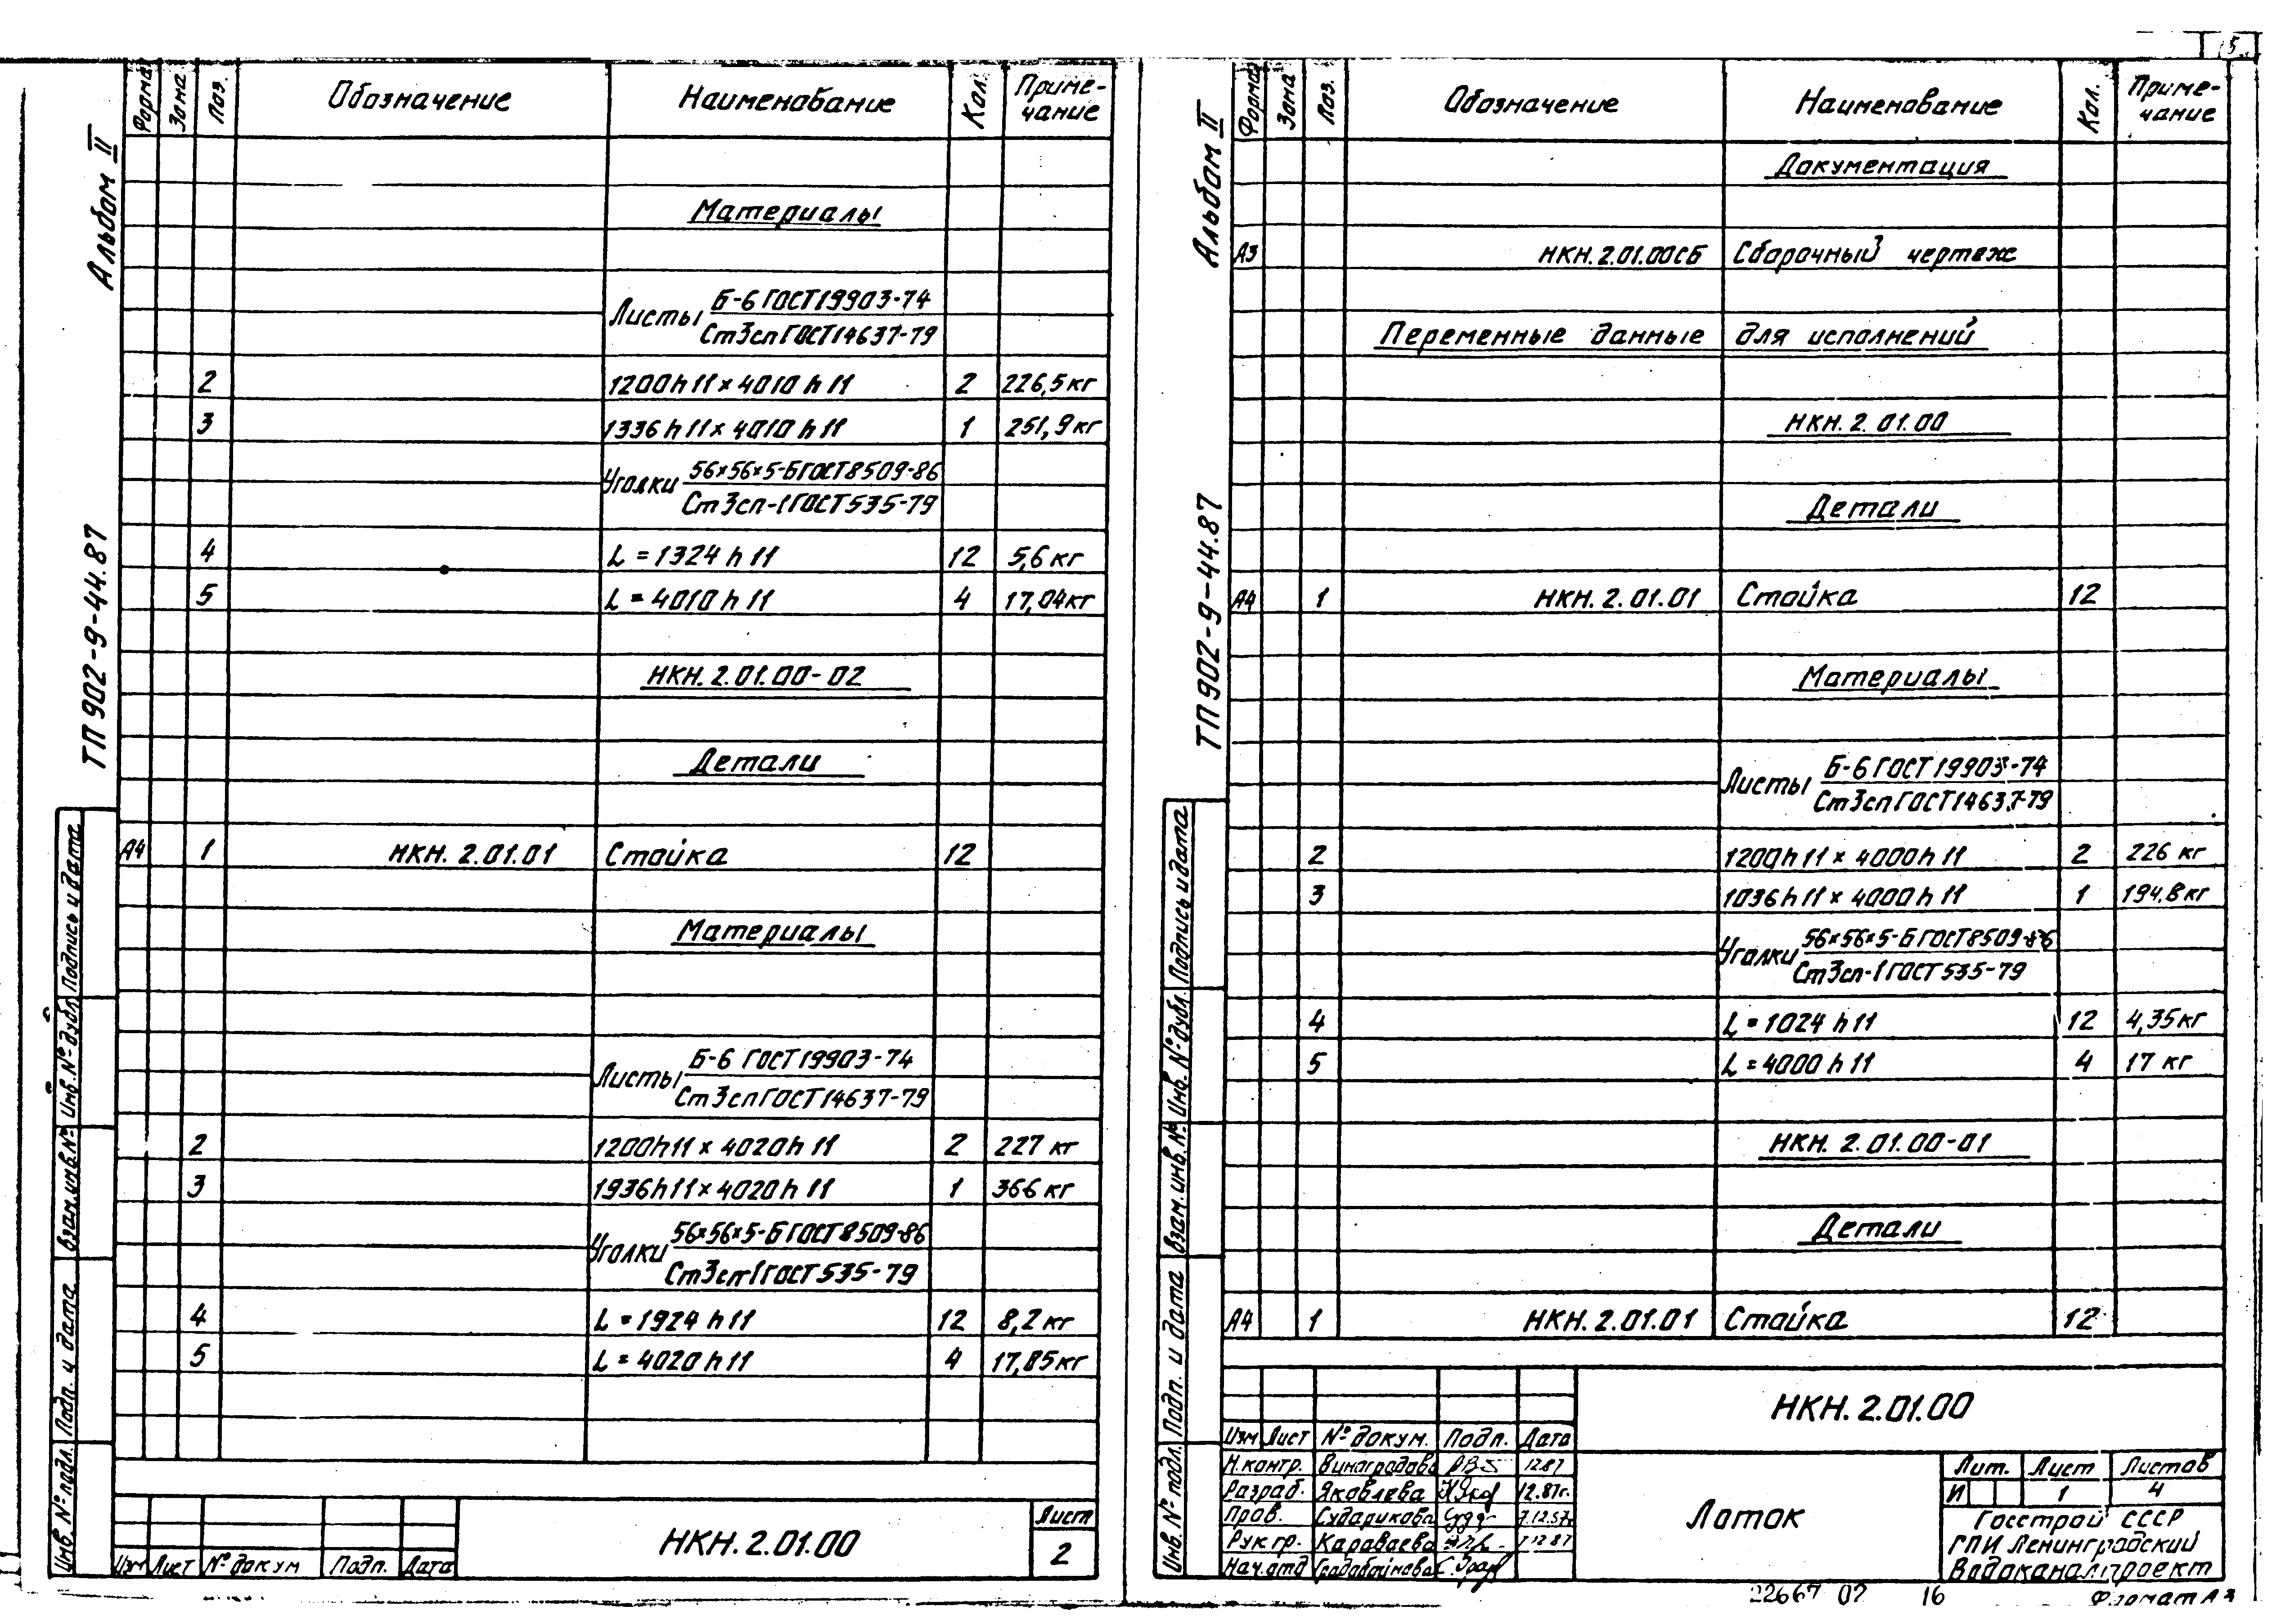 Альбом II
ТП 902-9-44.87
Формат Зона Поз. Обозначение Наименование Кол. Приме-
чание
Материалы
Листы Б-6 ГОСТ 19903-74
Ст3сп ГОСТ 14637-79
2 1200h11×4010h11 2 226,5кг
3 1336h11×4010h11 1 251,9кг
Уголки 56×56×5-Б ГОСТ 8509-86
Ст3сп-1 ГОСТ 535-79
4 L=1324h11 12 5,6кг
5 L=4010h11 4 17,04кг
НКН.2.01.00-02
Детали
А4 1 НКН.2.01.01 Стойка 12
Материалы
Листы Б-6 ГОСТ 19903-74
Ст3сп ГОСТ 14637-79
2 1200h11×4020h11 2 227 кг
3 1936h11×4020h11 1 366 кг
Уголки 56×56×5-Б ГОСТ 8509-86
Ст3сп-1 ГОСТ 535-79
4 L=1924h11 12 8,2кг
5 L=4020h11 4 17,85кг
Инв. № подл. Подп. и дата Взам.инв.№ Инв. № дубл. Подпись и дата
Изм Лист № докум Подп. Дата
НКН.2.01.00
Лист
2
Альбом II
ТП 902-9-44.87
Формат Зона Поз. Обозначение Наименование Кол. Приме-
чание
Документация
А3 НКН.2.01.00СБ Сборочный чертеж
Переменные данные для исполнений
НКН.2.01.00
Детали
А4 1 НКН.2.01.01 Стойка 12
Материалы
Листы Б-6 ГОСТ 19903-74
Ст3сп ГОСТ 14637-79
2 1200h11×4000h11 2 226 кг
3 1036h11×4000h11 1 194,8кг
Уголки 56×56×5-Б ГОСТ 8509-86
Ст3сп-1 ГОСТ 535-79
4 L=1024h11 12 4,35кг
5 L=4000h11 4 17 кг
НКН.2.01.00-01
Детали
А4 1 НКН.2.01.01 Стойка 12
Инв. № подл. Подп. и дата Взам.инв.№ Инв. № дубл. Подпись и дата
НКН.2.01.00
Изм Лист № докум. Подп. Дата
Н.контр. Виноградова 12.87
Разраб. Яковлева 12.87г.
Пров. Сударикова
Рук гр. Караваева 12.87
Нач.отд Градобоинова
Лоток
Лит. Лист Листов
И 1 4
Госстрой СССР
ГПИ Ленинградский
Водоканалпроект
22667 02 16 Формат А3